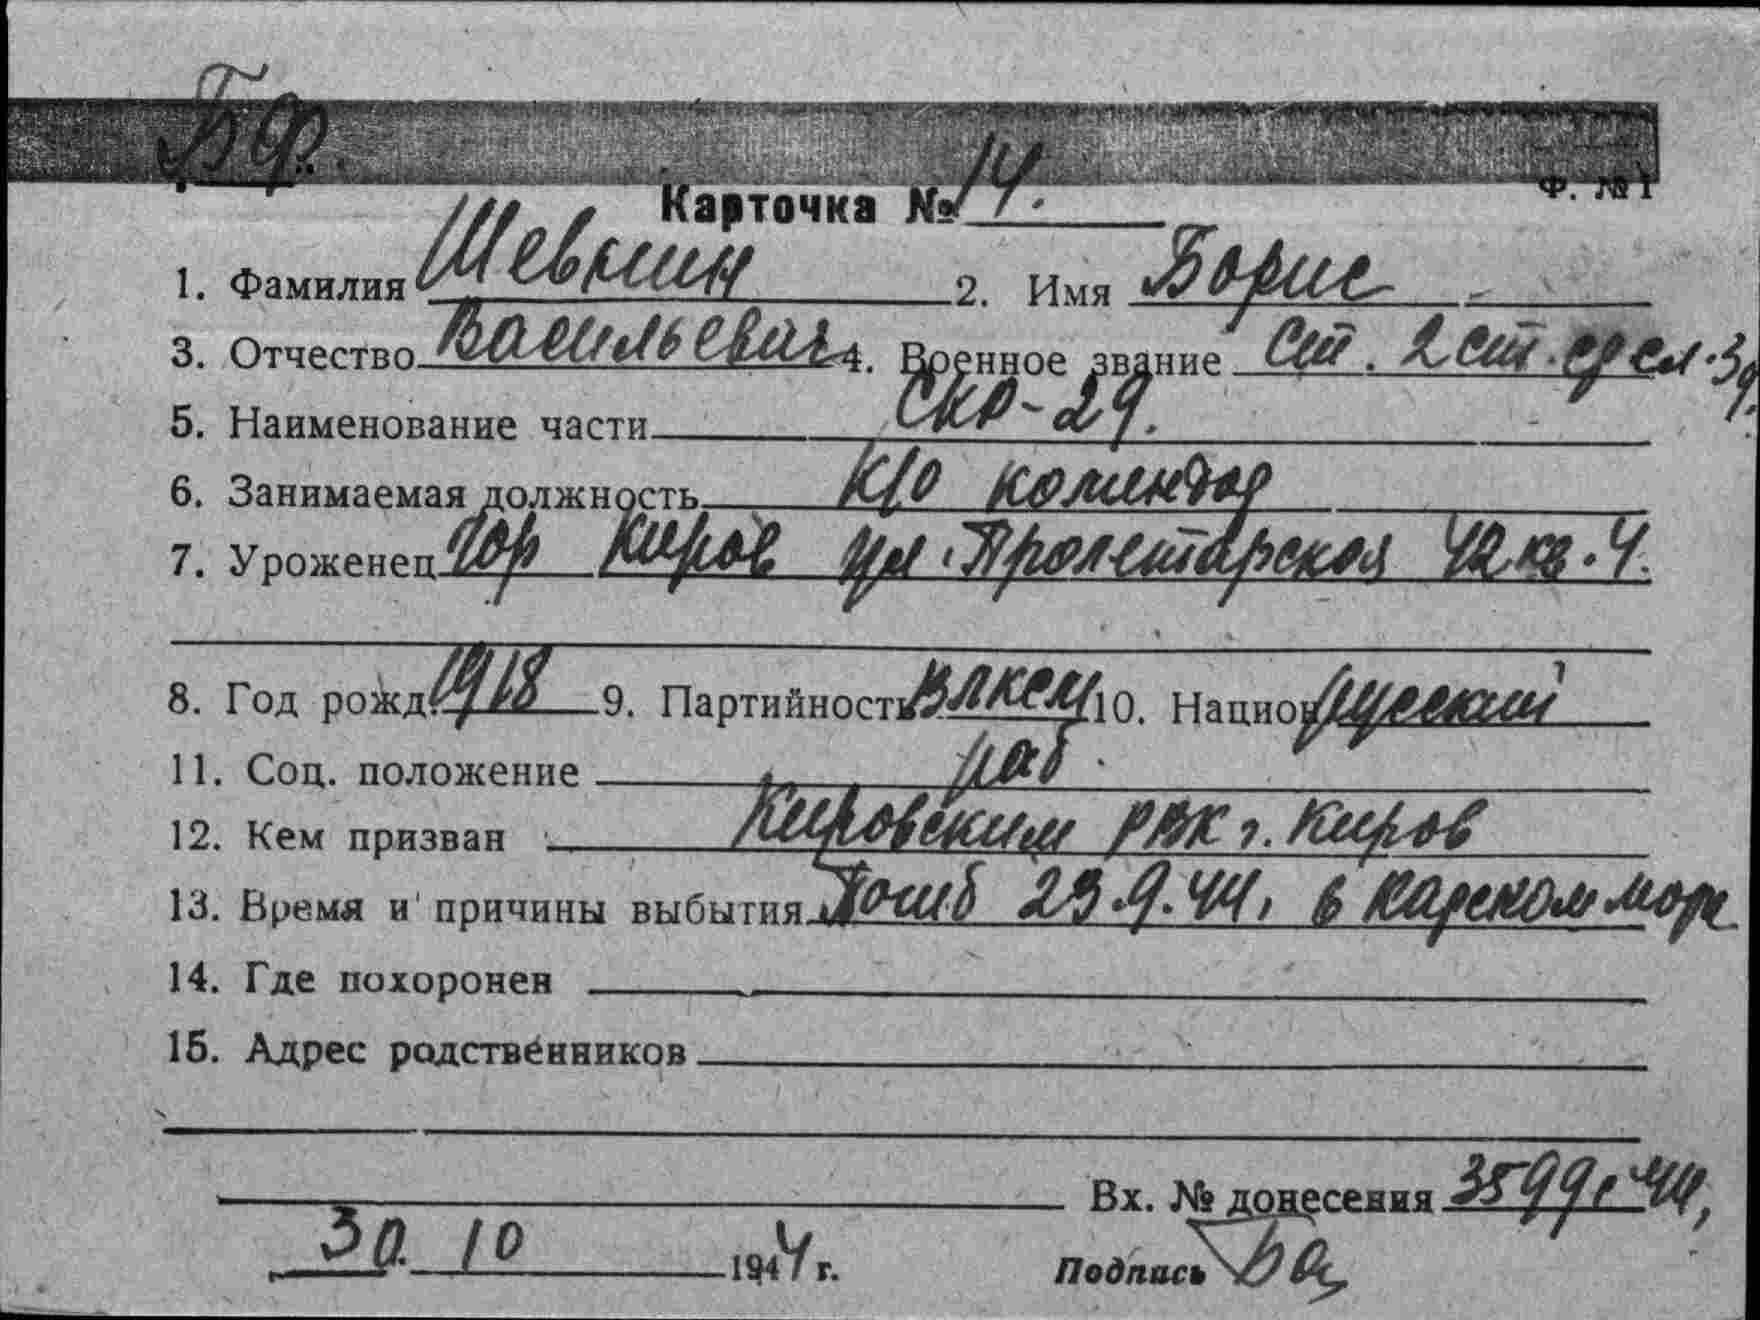 БФ.
Ф. № 1
Карточка № 14.
1. Фамилия Шевнин 2. Имя Борис
3. Отчество Васильевич 4. Военное звание Ст. 2 ст.
5. Наименование части СКР-29.
6. Занимаемая должность К/о комендор
7. Уроженец гор Киров ул. Пролетарская 42 кв. 4.
8. Год рожд. 1918 9. Партийность ВЛКСМ 10. Национ. русский
11. Соц. положение раб.
12. Кем призван Кировским РВК г. Киров
13. Время и причины выбытия Погиб 23.9.44, в Карском море
14. Где похоронен
15. Адрес родственников
Вх. № донесения 3599с 44,
30. 10 1944 г. Подпись